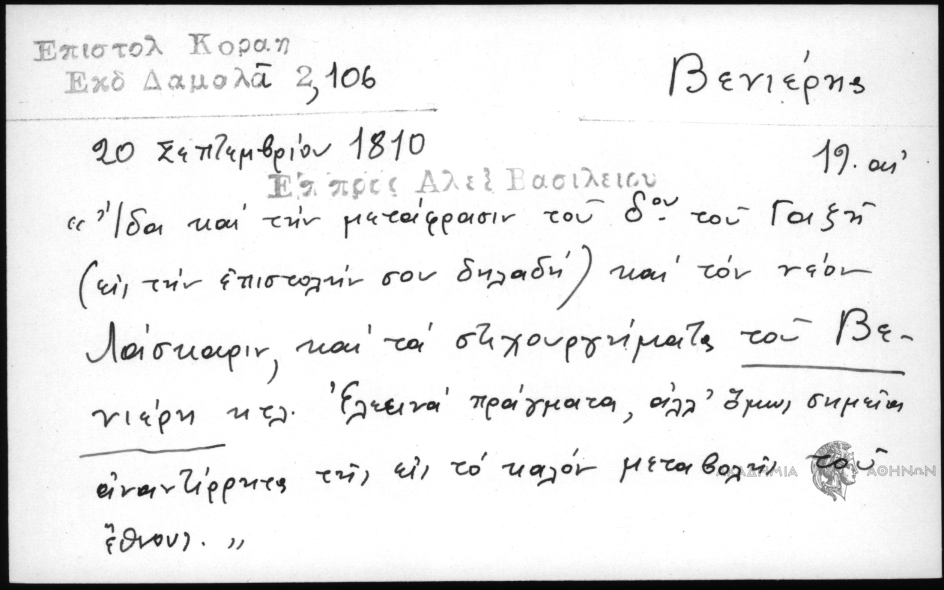 Επιστολ Κοραη
Εκδ Δαμαλᾶ 2,106
Βενιέρης
20 Σεπτεμβρίου 1810
19. αἰ
Επ προς Αλεξ Βασιλειου
« Ἴδα καί τήν μετάφρασιν τοῦ δου. τοῦ Γαζῆ
(εἰς τήν ἐπιστολήν σου δηλαδή) καί τόν νέον
Λάσκαριν, καί τά στιχουργήματα τοῦ Βε-
νιέρη κτλ. Ἐλεεινά πράγματα, ἀλλ' ὅμως σημεῖα
ἀναντίρρητα τῆς εἰς τό καλόν μεταβολῆς τοῦ
ἔθνους. „
ΑΚΑΔΗΜΙΑ ΑΘΗΝΩΝ